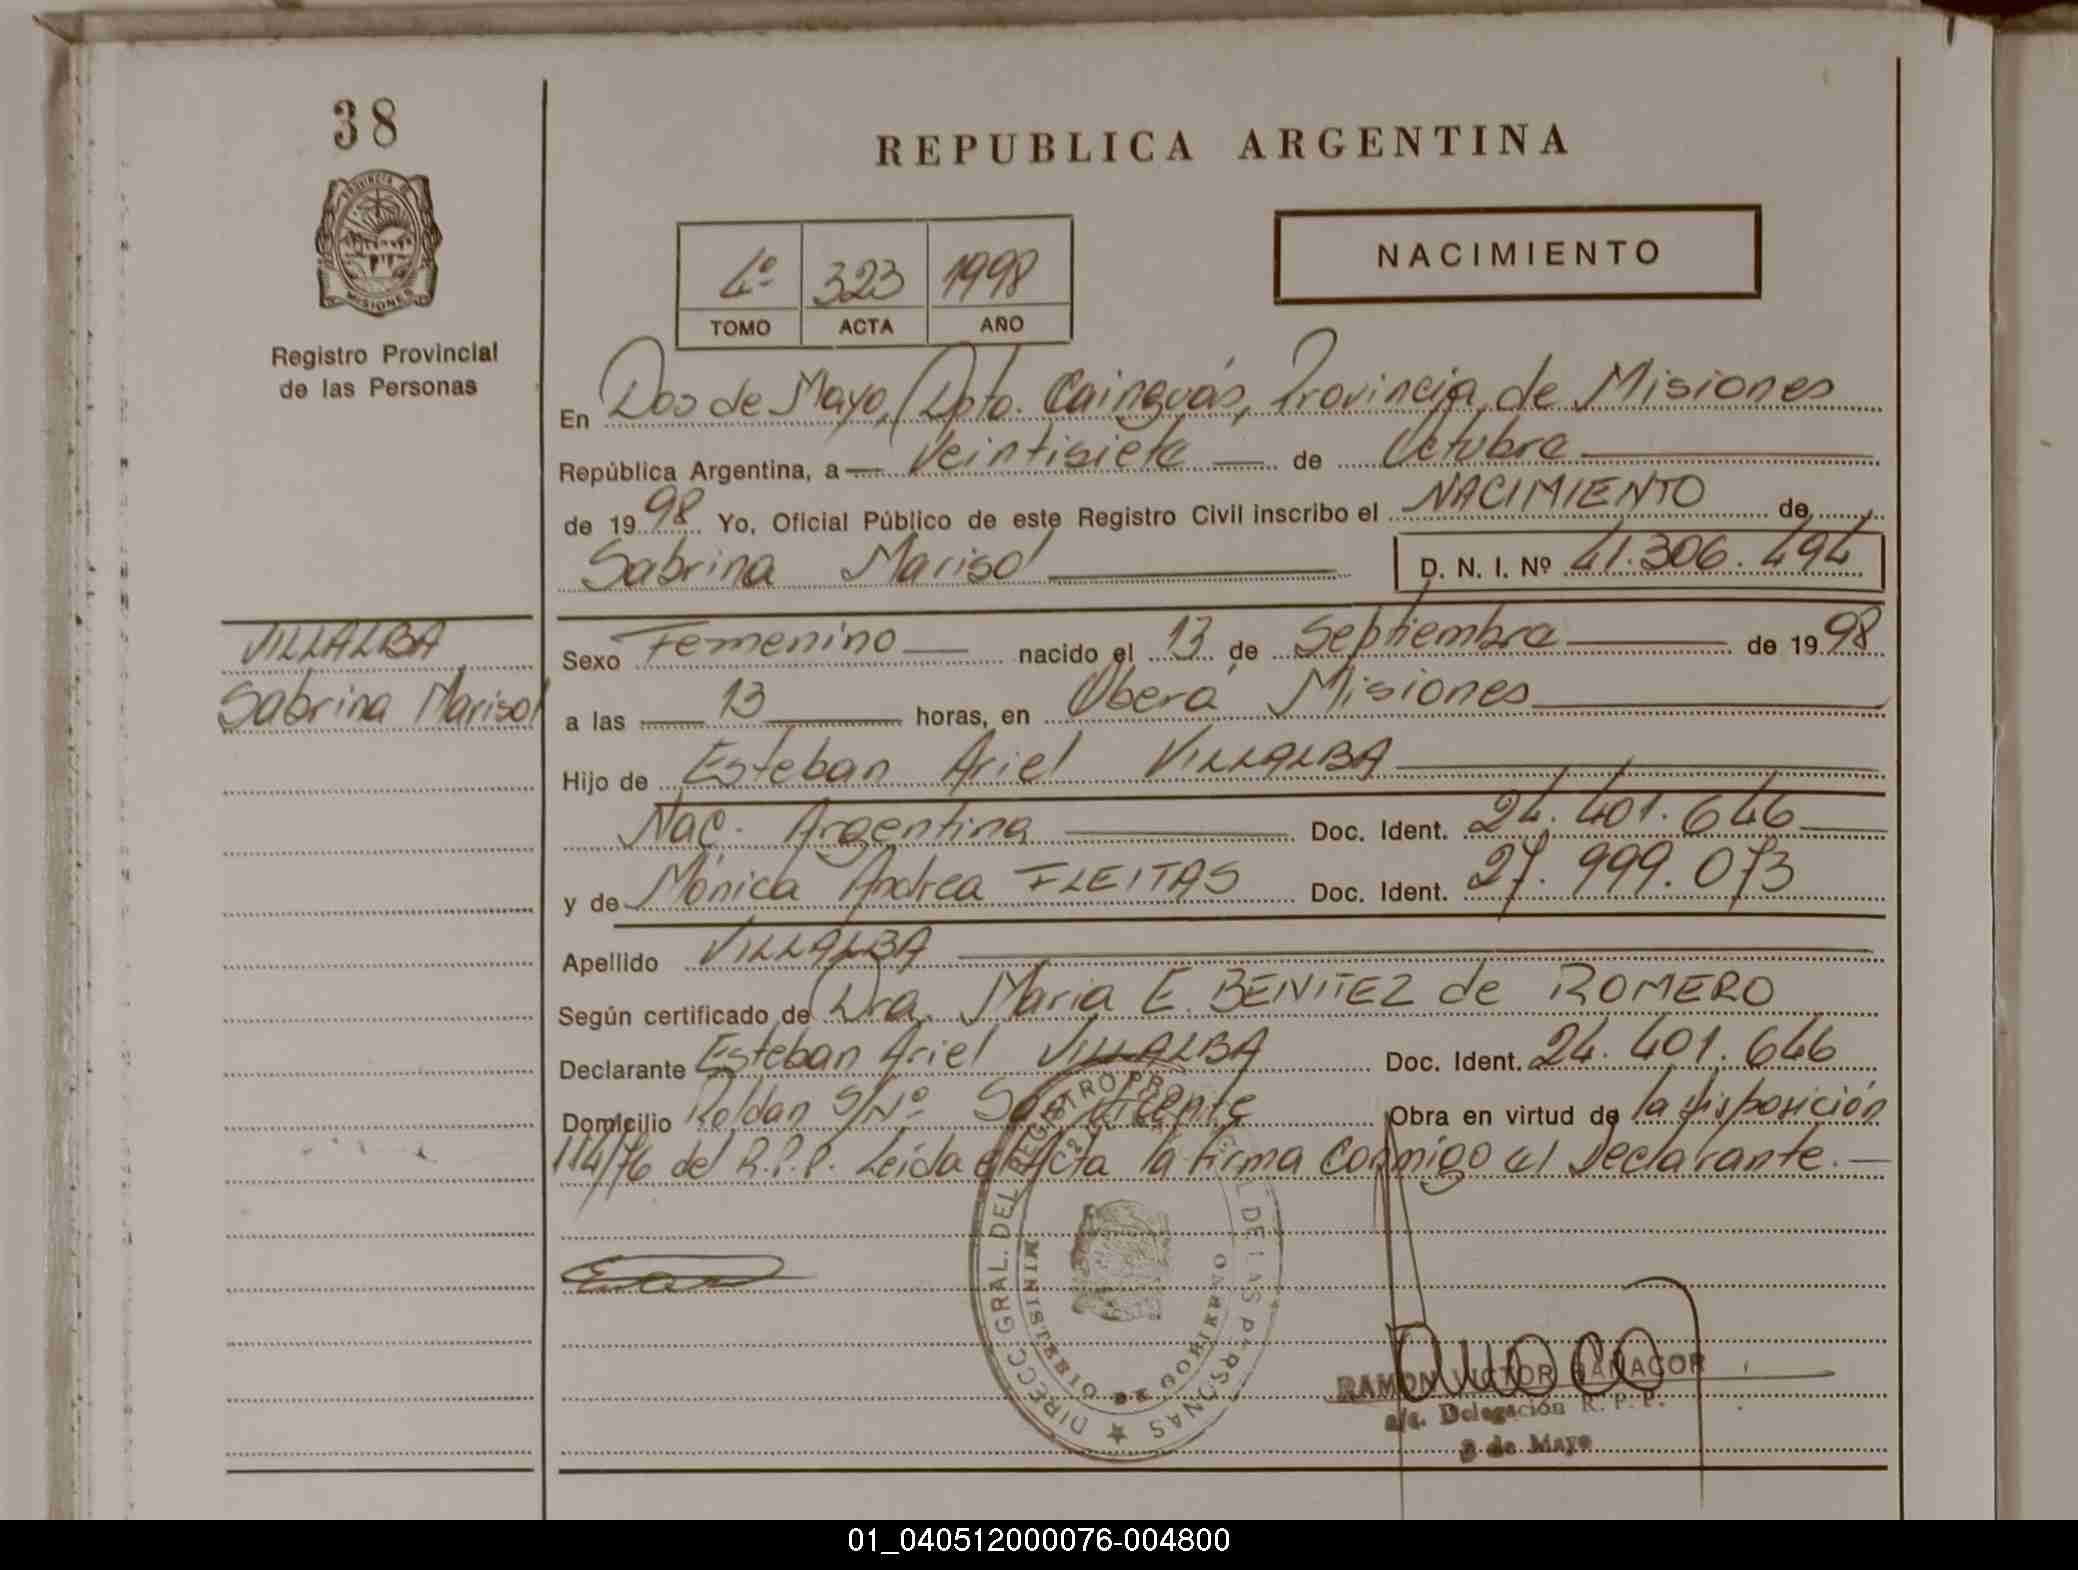 38
REPUBLICA ARGENTINA
PROVINCIA DE
MISIONES
NACIMIENTO
4º 323 1998
TOMO ACTA AÑO
Registro Provincial
de las Personas
En Dos de Mayo, Dpto. Cainguás, Provincia de Misiones
República Argentina, a Veintisiete de Octubre
de 1998 Yo, Oficial Público de este Registro Civil inscribo el NACIMIENTO de
Sabrina Marisol D. N. I. Nº 41.306.494
VILLALBA
Sabrina Marisol
Sexo Femenino nacido el 13 de Septiembre de 1998
a las 13 horas, en Oberá Misiones
Hijo de Esteban Ariel VILLALBA
Nac. Argentina Doc. Ident. 24.401.646
y de Mónica Andrea FLEITAS Doc. Ident. 27.999.073
Apellido VILLALBA
Según certificado de Dra. Maria E. BENITEZ de ROMERO
Declarante Esteban Ariel VILLALBA Doc. Ident. 24.401.646
Domicilio Roldan S/Nº San Vicente Obra en virtud de la disposición
114/76 del R.P.P. Leida el Acta la firma conmigo el Declarante.
DIRECC GRAL. DEL REGISTRO DE LAS PERSONAS
MINISTERIO DE GOBIERNO
RAMON VICTOR
a/c. Delegación R. P. P.
2 de Mayo
01_040512000076-004800